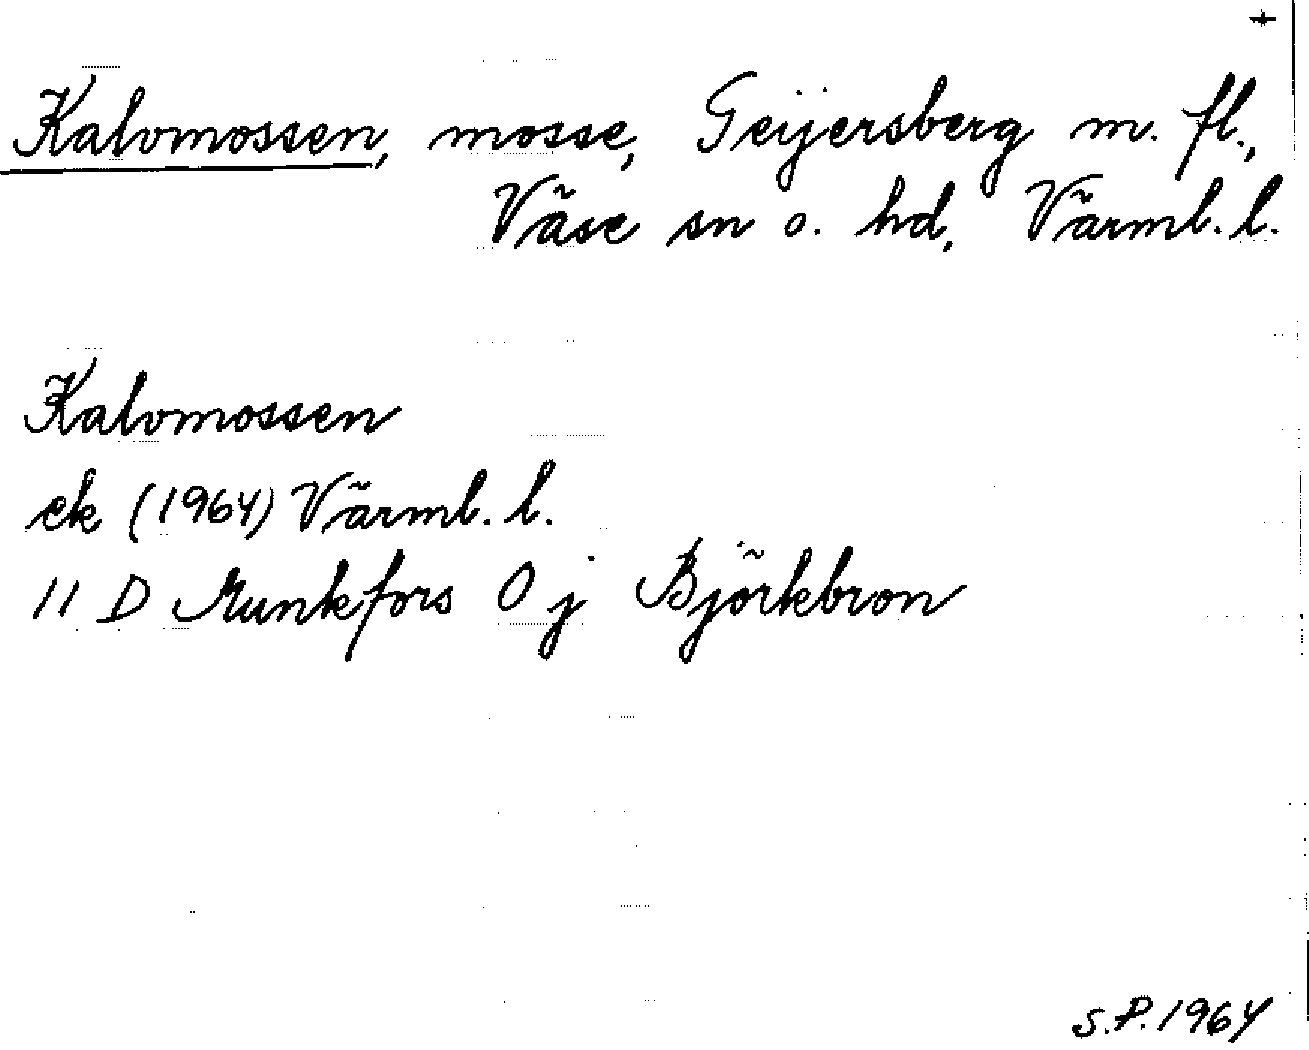 +
Kalvmossen, mosse, Geijersberg m. fl.,
Väse sn o. hd, Värml. l.
Kalvmossen
ek (1964) Värml. l.
11 D Munkfors 0 j Björkbron
S.P. 1964